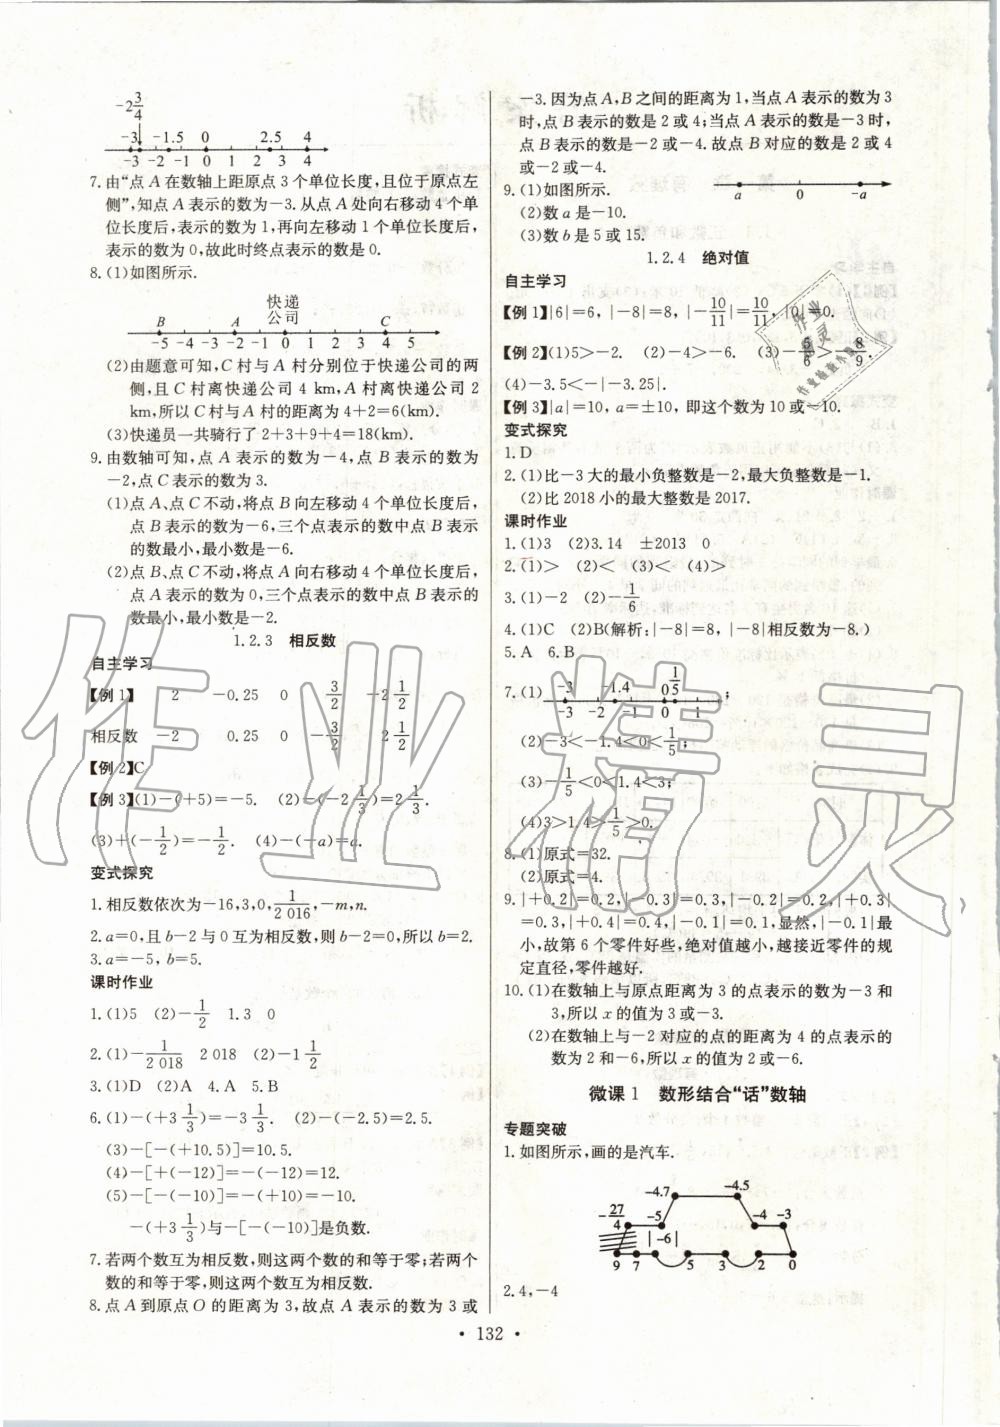 -2 3/4
-3 -1.5 0 2.5 4
-3 -2 -1 0 1 2 3 4
7.由“点 A 在数轴上距原点 3 个单位长度,且位于原点左
侧”,知点 A 表示的数为-3.从点 A 处向右移动 4 个单
位长度后,表示的数为 1,再向左移动 1 个单位长度后,
表示的数为 0,故此时终点表示的数是 0.
8.(1)如图所示.
快递
公司
B A C
-5 -4 -3 -2 -1 0 1 2 3 4 5
(2)由题意可知,C 村与 A 村分别位于快递公司的两
侧,且 C 村离快递公司 4 km,A 村离快递公司 2
km,所以 C 村与 A 村的距离为 4+2=6(km).
(3)快递员一共骑行了 2+3+9+4=18(km).
9.由数轴可知,点 A 表示的数为-4,点 B 表示的数为
-2,点 C 表示的数为 3.
(1)点 A、点 C 不动,将点 B 向左移动 4 个单位长度后,
点 B 表示的数为-6,三个点表示的数中点 B 表示
的数最小,最小数是-6.
(2)点 B、点 C 不动,将点 A 向右移动 4 个单位长度后,
点 A 表示的数为 0,三个点表示的数中点 B 表示的
数最小,最小数是-2.
1.2.3 相反数
自主学习
【例 1】 2 -0.25 0 3/2 -2 1/2
相反数 -2 0.25 0 -3/2 2 1/2
【例 2】C
【例 3】(1)-(+5)=-5. (2)-(-2 1/3)=2 1/3.
(3)+(-1/2)=-1/2. (4)-(-a)=a.
变式探究
1.相反数依次为-16,3,0,1/2 016,-m,n.
2.a=0,且 b-2 与 0 互为相反数,则 b-2=0,所以 b=2.
3.a=-5,b=5.
课时作业
1.(1)5 (2)-1/2 1.3 0
2.(1)-1/2 018 2 018 (2)-1 1/2
3.(1)D (2)A 4.A 5.B
6.(1)-(+3 1/3)=-3 1/3. (2)-(-2.5)=2.5.
(3)-[-(+10.5)]=10.5.
(4)-[+(-12)]=-(-12)=12.
(5)-[-(-10)]=-(+10)=-10.
-(+3 1/3)与-[-(-10)]是负数.
7.若两个数互为相反数,则这两个数的和等于零;若两个
数的和等于零,则这两个数互为相反数.
8.点 A 到原点 O 的距离为 3,故点 A 表示的数为 3 或
-3.因为点 A,B 之间的距离为 1,当点 A 表示的数为 3
时,点 B 表示的数是 2 或 4;当点 A 表示的数是-3 时,
点 B 表示的数是-2 或-4.故点 B 对应的数是 2 或 4
或-2 或-4.
9.(1)如图所示.
a 0 -a
(2)数 a 是-10.
(3)数 b 是 5 或 15.
1.2.4 绝对值
自主学习
【例 1】|6|=6,|-8|=8,|-10/11|=10/11,|0|=0.
【例 2】(1)5>-2. (2)-4>-6. (3)-5/6>-8/9.
(4)-3.5<-|-3.25|.
【例 3】|a|=10,a=±10,即这个数为 10 或-10.
变式探究
1.D
2.(1)比-3 大的最小负整数是-2,最大负整数是-1.
(2)比 2018 小的最大整数是 2017.
课时作业
1.(1)3 (2)3.14 ±2013 0
2.(1)> (2)< (3)< (4)>
3.(1)-2 (2)-1/6
4.(1)C (2)B(解析:|-8|=8,|-8|相反数为-8.)
5.A 6.B
7.(1) -3 -1.4 0 1/5 ;
-3 -2 -1 0 1
(2)-3<-1.4<0<1/5;
(3)-1/5<0<1.4<3;
(4)3>1.4>1/5>0.
8.(1)原式=32.
(2)原式=4.
9.|+0.2|=0.2,|-0.3|=0.3,|-0.2|=0.2,|+0.3|
=0.3,|+0.4|=0.4,|-0.1|=0.1,显然,|-0.1|最
小,故第 6 个零件好些,绝对值越小,越接近零件的规
定直径,零件越好.
10.(1)在数轴上与原点距离为 3 的点表示的数为-3 和
3,所以 x 的值为 3 或-3.
(2)在数轴上与-2 对应的点的距离为 4 的点表示的
数为 2 和-6,所以 x 的值为 2 或-6.
微课 1 数形结合“话”数轴
专题突破
1.如图所示,画的是汽车.
-4.7 -4.5
-27/4 -5 -4 -3
|-6|
9 7 5 3 2 0
2.4,-4
• 132 •
作业精灵